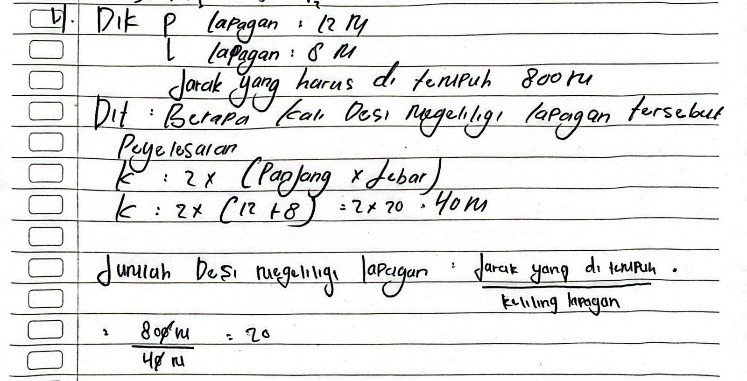 b). Dik p lapagan : 12 M
l lapagan : 8 M
Jarak yang harus di tempuh 800 m
Dit : Berapa kali Desi megeliligi lapagan tersebut
Peyelesaian
k : 2 x (Panjang x Lebar)
k : 2 x (12 + 8) = 2 x 20 = 40 m
Jumlah Desi megeliligi lapagan : Jarak yang di tempuh
keliling lapagan
= 800 m = 20
40 m